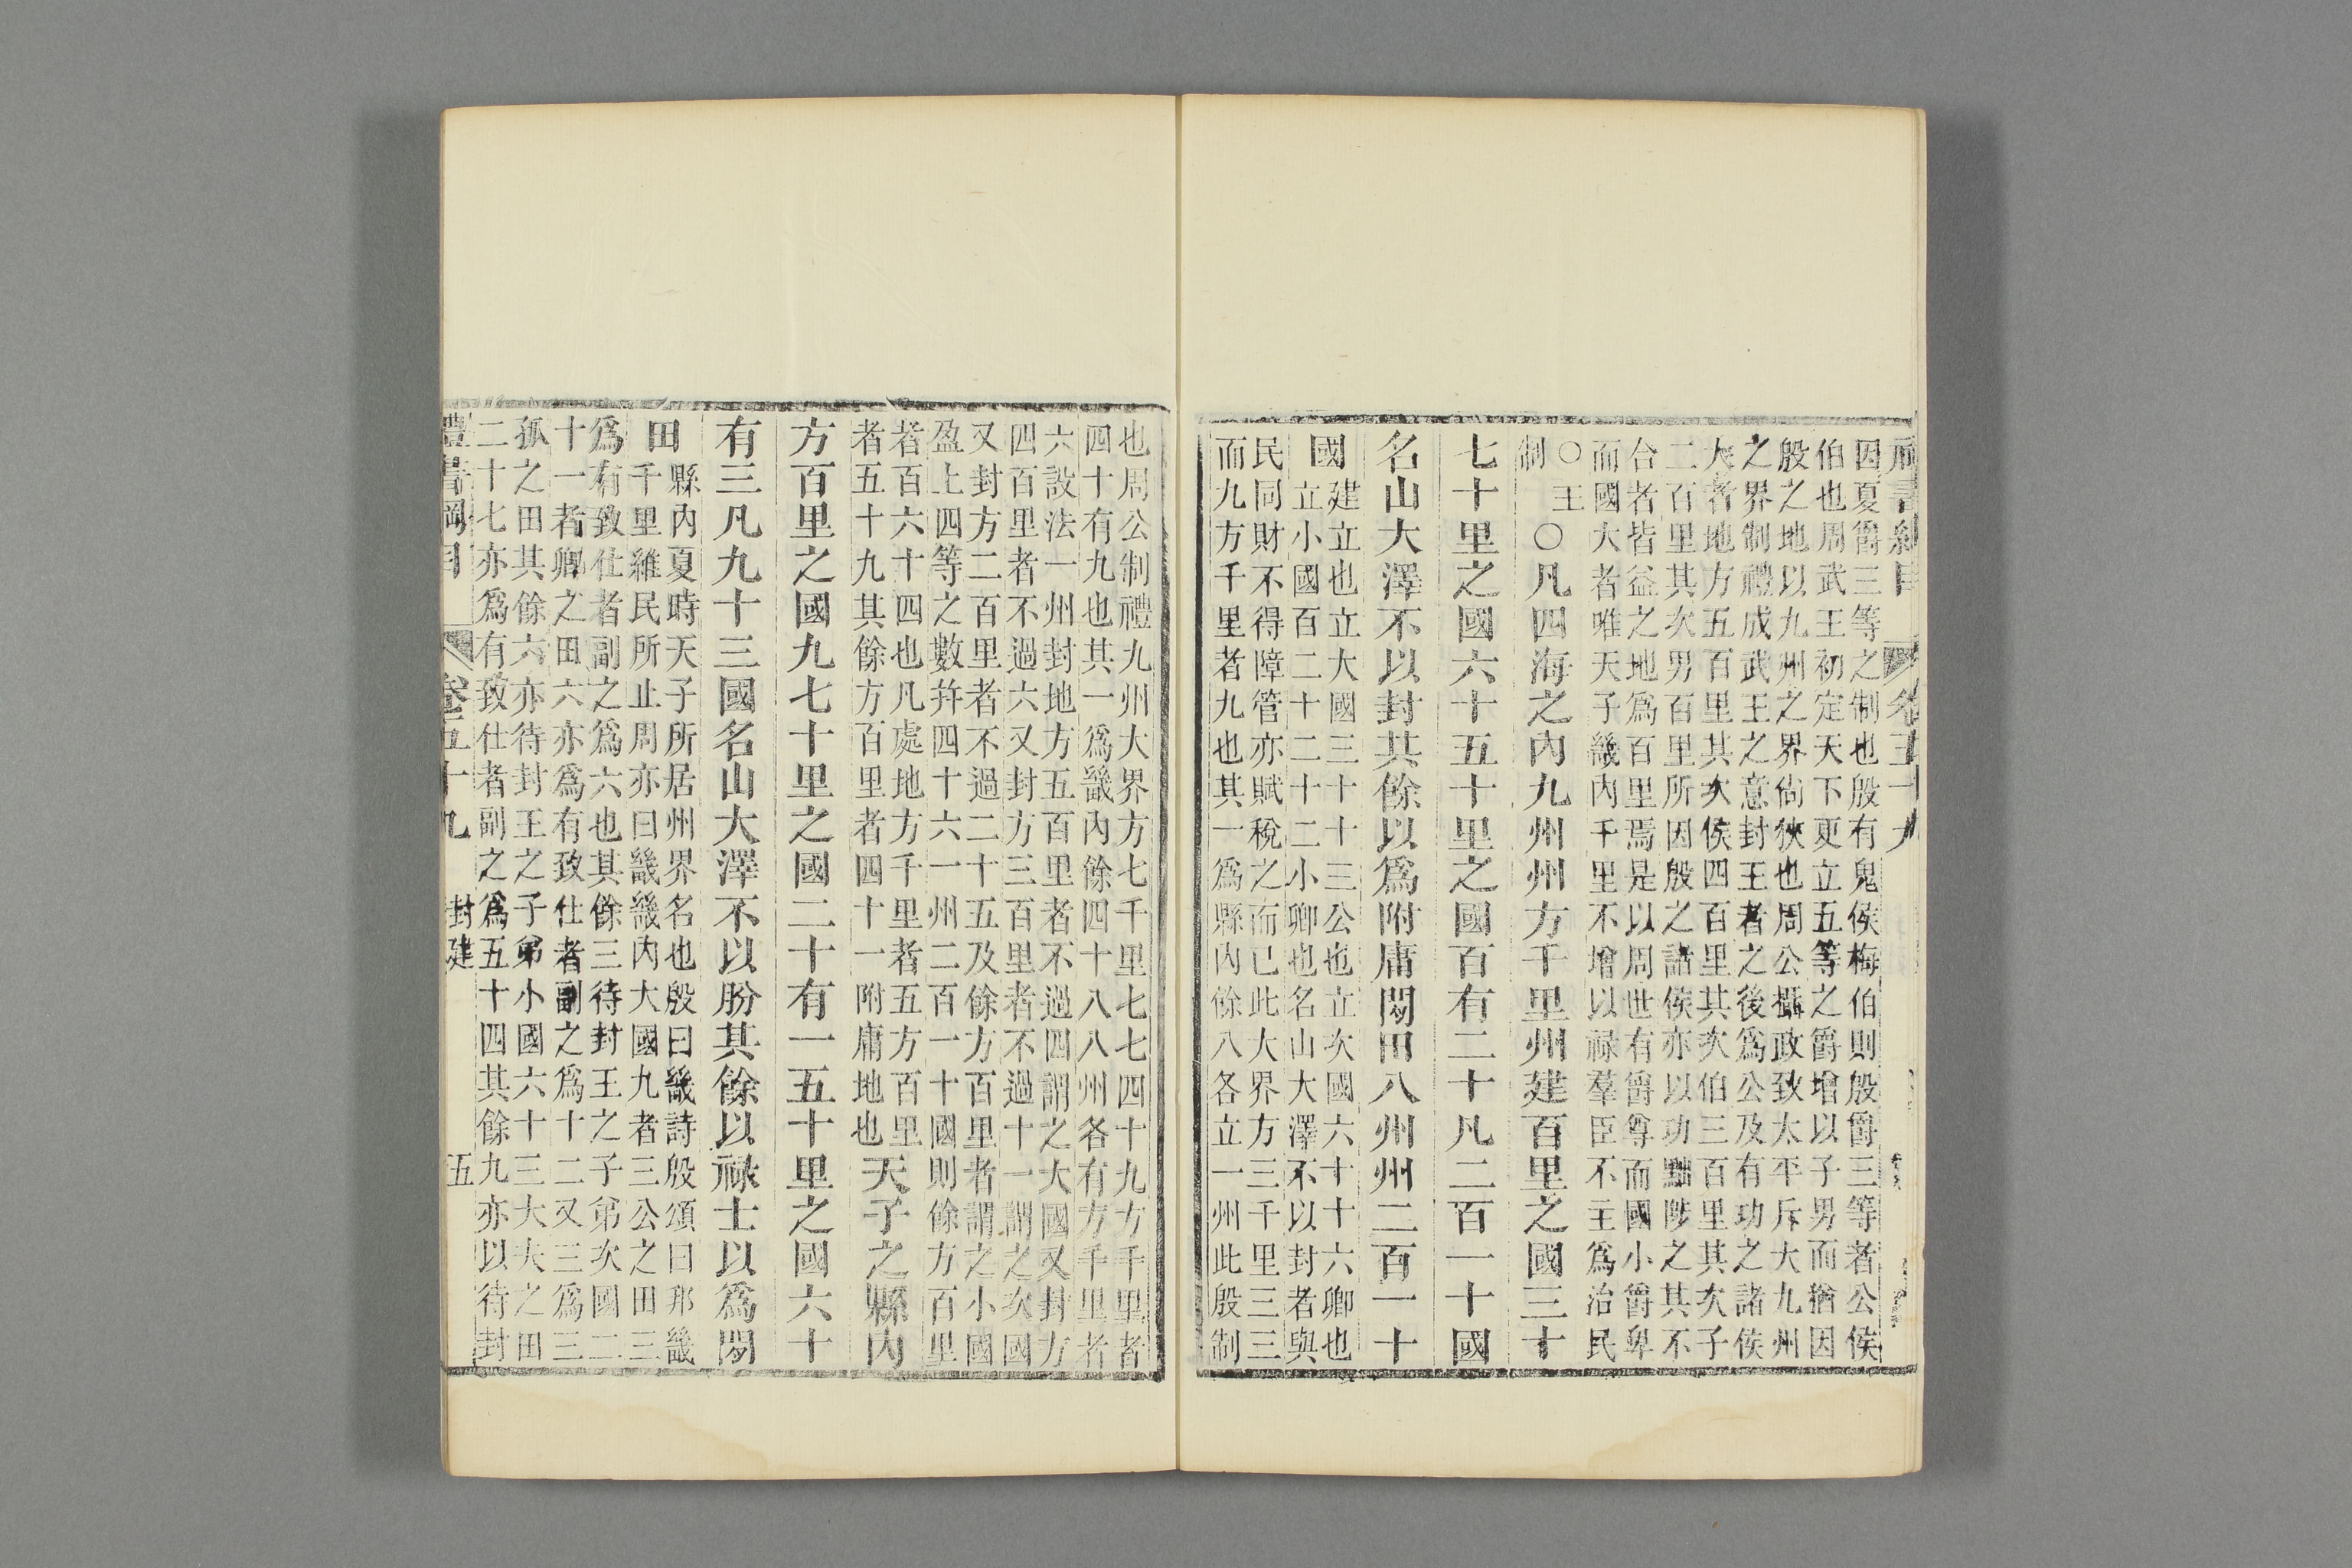 禮書綱目 卷五十九
因夏爵三等之制也殷有鬼侯梅伯則殷爵三等者公侯
伯也周武王初定天下更立五等之爵增以子男而猶因
殷之地以九州之界尙狹也周公攝政致太平斥大九州
之界制禮成武王之意封王者之後爲公及有功之諸侯
大者地方五百里其次侯四百里其次伯三百里其次子
二百里其次男百里所因殷之諸侯亦以功黜陟之其不
合者皆益之地爲百里焉是以周世有爵尊而國小爵卑
而國大者唯天子畿內千里不增以祿羣臣不主爲治民
○王制○凡四海之內九州州方千里州建百里之國三十
七十里之國六十五十里之國百有二十凡二百一十國
名山大澤不以封其餘以爲附庸閒田八州州二百一十
國建立也立大國三十十三公也立次國六十十六卿也
立小國百二十十二小卿也名山大澤不以封者與
民同財不得障管亦賦稅之而已此大界方三千里三三
而九方千里者九也其一爲縣內餘八各立一州此殷制
也周公制禮九州大界方七千里七七四十九方千里者
四十有九也其一爲畿內餘四十八八州各有方千里者
六設法一州封地方五百里者不過四謂之大國又封方
四百里者不過六又封方三百里者不過十一謂之次國
又封方二百里者不過二十五及餘方百里者謂之小國
盈上四等之數幷四十六一州二百一十國則餘方百里
者百六十四也凡處地方千里者五方百里
者五十九其餘方百里者四十一附庸地也
天子之縣內
方百里之國九七十里之國二十有一五十里之國六十
有三凡九十三國名山大澤不以朌其餘以祿士以爲閒
田縣內夏時天子所居州界名也殷曰畿詩殷頌曰邦畿
千里維民所止周亦曰畿畿內大國九者三公之田三
爲有致仕者副之爲六也其餘三待封王之子弟次國二
十一者卿之田六亦爲有致仕者副之爲十二又三爲三
孤之田其餘六亦待封王之子弟小國六十三大夫之田
二十七亦爲有致仕者副之爲五十四其餘九亦以待封
禮書綱目 卷五十九 封建 五